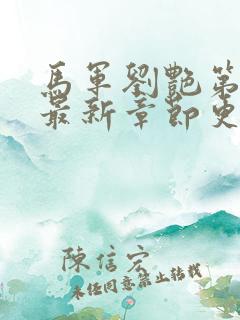 馬軍劉艷第
最新章節免
陳信宏
未經同意禁止轉載